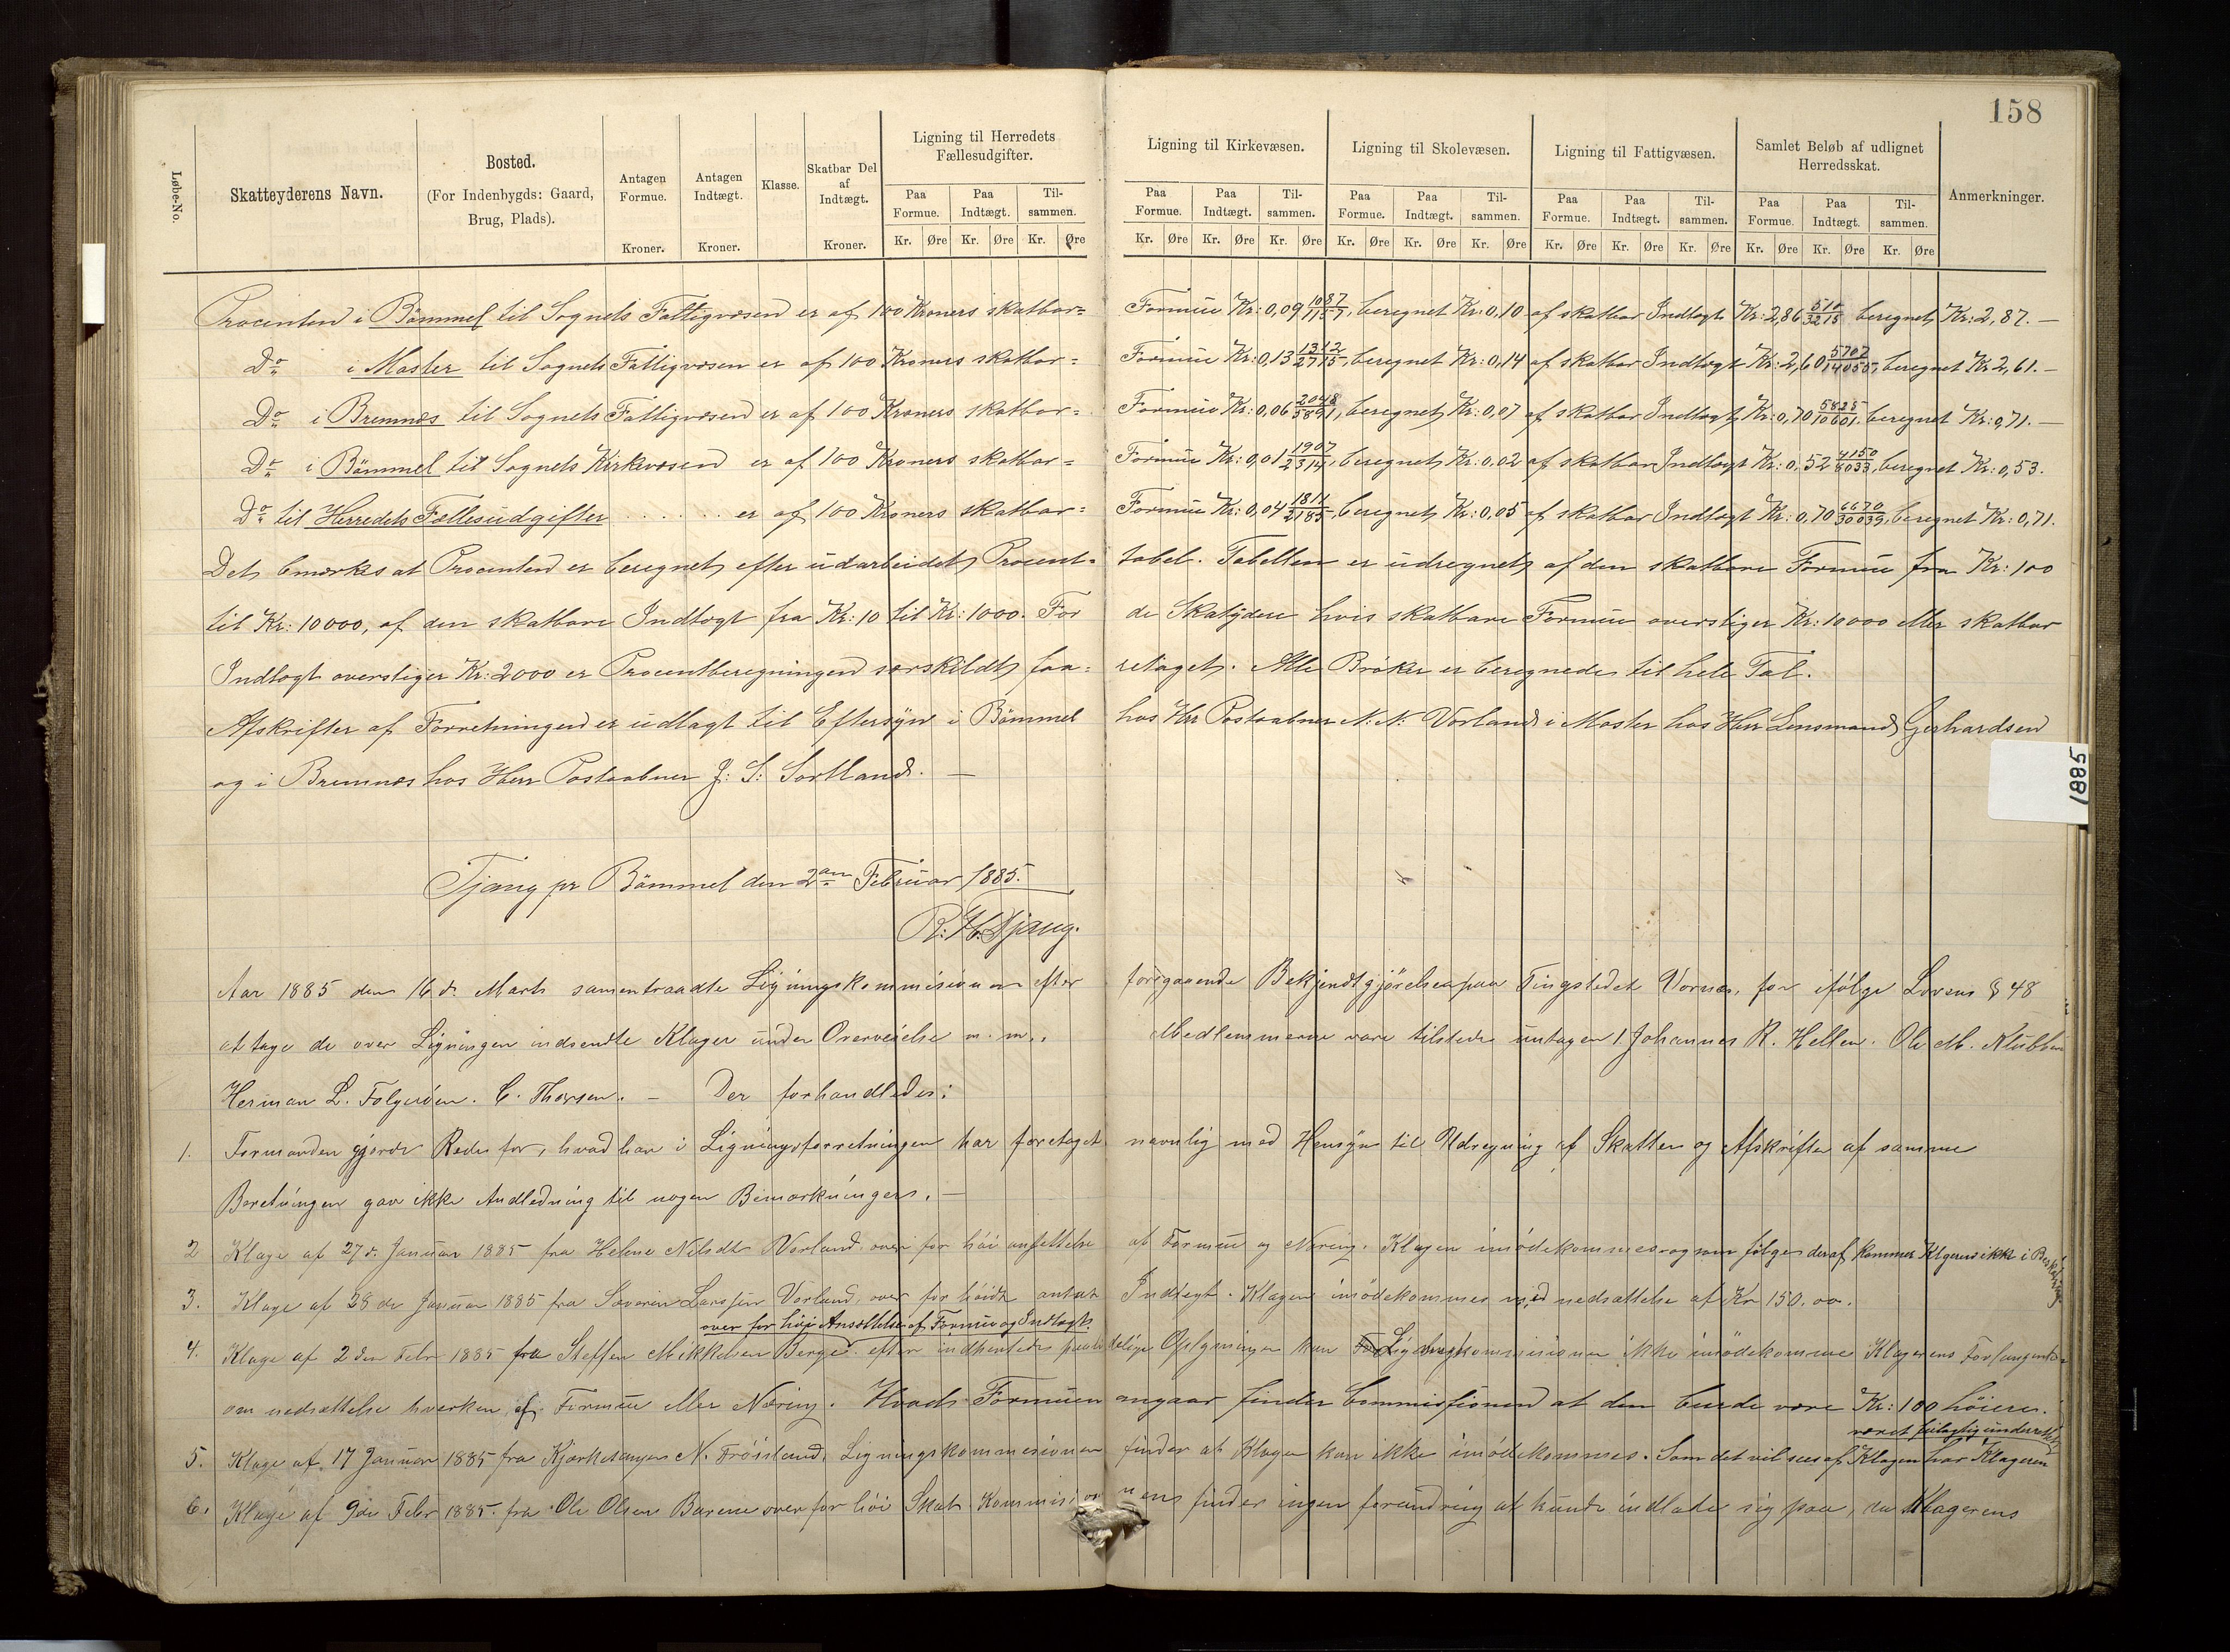 158
Løbe-No.
Skatteyderens Navn.
Bosted.
(For Indenbygds: Gaard, Brug, Plads).
Antagen Formue.
Kroner.
Antagen Indtægt.
Kroner.
Klasse.
Skatbar Del af Indtægt.
Kroner.
Ligning til Herredets Fællesudgifter.
Paa Formue. Paa Indtægt. Til- sammen.
Kr. Øre Kr. Øre Kr. Øre
Ligning til Kirkevæsen.
Paa Formue. Paa Indtægt. Til- sammen.
Kr. Øre Kr. Øre Kr. Øre
Ligning til Skolevæsen.
Paa Formue. Paa Indtægt. Til- sammen.
Kr. Øre Kr. Øre Kr. Øre
Ligning til Fattigvæsen.
Paa Formue. Paa Indtægt. Til- sammen.
Kr. Øre Kr. Øre Kr. Øre
Samlet Beløb af udlignet Herredsskat.
Paa Formue. Paa Indtægt. Til- sammen.
Kr. Øre Kr. Øre Kr. Øre
Anmerkninger.
Procenten i Bömmel til Sognets Fattigvæsen er af 100 Kroners skatbar= Formue Kr: 0,09 1087/1157, beregnet Kr: 0,10 af skatbar Indtægt Kr: 2,86 beregnet Kr: 2,87. —
Do i Moster til Sognets Fattigvæsen er af 100 Kroners skatbar= Formue Kr: 0,13 1312/2715, beregnet Kr: 0,14 af skatbar Indtægt Kr: 2,60 5707/14055, beregnet Kr 2,61. —
Do i Bremnæs til Sognets Fattigvæsen er af 100 Kroners skatbar= Formue Kr: 0,06 2048/5891, beregnet Kr: 0,07 af skatbar Indtægt Kr: 0,70 5825/10601 beregnet Kr: 0,71. —
Do i Bömmel til Sognets Kirkevæsen er af 100 Kroners skatbar= Formue Kr: 0,01 1907/2314, beregnet Kr: 0,02 af skatbar Indtægt Kr: 0,52 4150/8033, beregnet Kr: 0,53.
Do til Herredets Fællesudgifter ..... er af 100 Kroners skatbar= Formue Kr: 0,04 1811/2185, beregnet Kr: 0,05 af skatbar Indtægt Kr: 0,70 6670/30039, beregnet Kr: 0,71.
Det bmærkes at Procenten er beregnet efter udarbeidet Procent= tabel. Tabellen er udregnet af den skatbare Formue fra Kr: 100
til Kr: 10000, af den skatbare Indtægt fra Kr: 10 til Kr: 1000. For de Skatydere hvis skatbare Formue overstiger Kr: 10000 eller skatbar
Indtægt overstiger Kr: 2000 er Procentberegningen særskildt faa= retaget. Alle Bröker er beregnede til hele Tal.
Afskrifter af Forretningen er udlagt til Eftersyn i Bömmel hos Hrr Postaabner N: N: Vorland i Moster hos Herr Lensmand Gerhardsen
og i Bremnæs hos Herr Postaabner J: S: Sortland. —
1885
Tjang pr Bömmel den 2den Februar 1885.
R: H. Tjang.
Aar 1885 den 16 d. Marts samentraadte Ligningskommisionen efter foregaaende Bekjendtgjörelse paa Tingstedet Vornæs, for ifölge Lovens § 48
at tage de over Ligningen indsendte Klager under Overveielse m. m.. Medlemmerne vare tilstede untagen 1. Johannes R. Hellen. Ole M. Klubben
Herman L. Folgeröen. C. Thorsen. — Der forhandledes:
1. Formanden gjorde Rede for, hvad han i Ligningsforretningen har foretaget navnlig med Hensyn til Udregning af Skatten og Afskrifter af samme
Beretningen gav ikke Andledning til nogen Bemærkninger. —
2 Klage af 27 d. Januar 1885 fra Helene Nilsdtr Vorland over for höi ansettelse af Formue og Næring. Klagen imödekommes og som fölge deraf kommer Klgeren ikke i Beskatning.
3. Klage af 28 de Januar 1885 fra Severin Larssen Vorland, over for höidt antat Indtegt. Klagen imödekommes med nedsættelse af Kr 150.00.
over for höi Ansættelse af Formue og Indtægt.
4. Klage af 2 den Febr 1885 fra Steffen Mikkelsen Berge efter indhentede paalidelige Oplysninger kan Ligningskommisionen ikke imödekomme Klagerens Forlangende
om nedsættelse hverken af Formue eller Næring. Hvad Formuen angaar finder Commissionen at den burde være Kr: 100 höiere.
været feilagtig underrettet
5. Klage af 17 Januar 1885 fra Kjærkesanger N. Fröisland. Ligningskommisionen finder at Klagen kan ikke imödekommes. Som det vil sees af Klagen har Klageren
6. Klage af 9de Febr 1885. fra Ole Olsen Barene over for höi Skat. Kommisionen finder ingen forandring at kunde indlade sig paa, da Klagerens